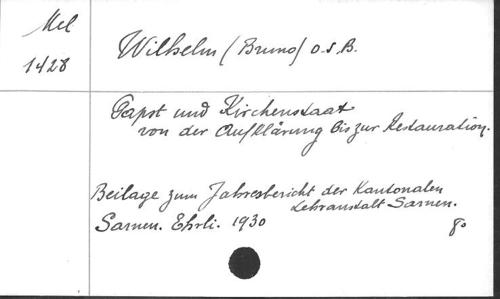 Mel
1428
Wilhelm (Bruno) O.S.B.
Papst und Kirchenstaat
von der Aufklärung bis zur Restauration.
Beilage zum Jahresbericht der Kantonalen
Lehranstalt Sarnen.
Sarnen. Ehrli. 1930
8º